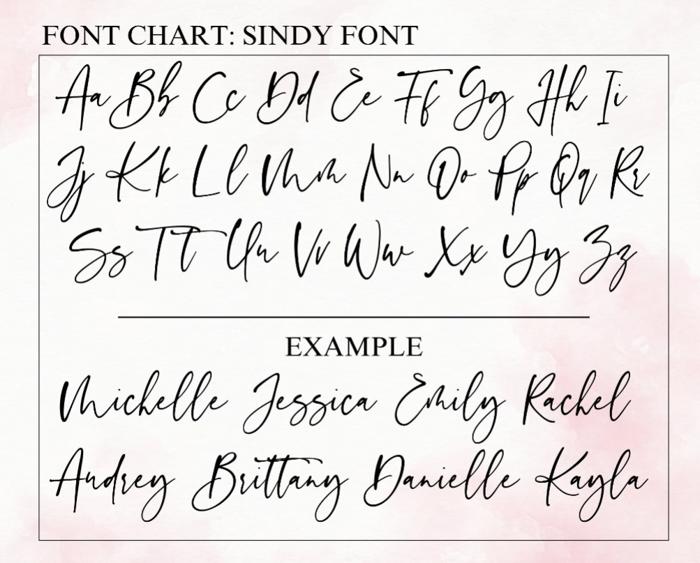 FONT CHART: SINDY FONT
Aa Bb Cc Dd Ee Ff Gg Hh Ii
Jj Kk Ll Mm Nn Oo Pp Qq Rr
Ss Tt Uu Vv Ww Xx Yy Zz
EXAMPLE
Michelle Jessica Emily Rachel
Audrey Brittany Danielle Kayla